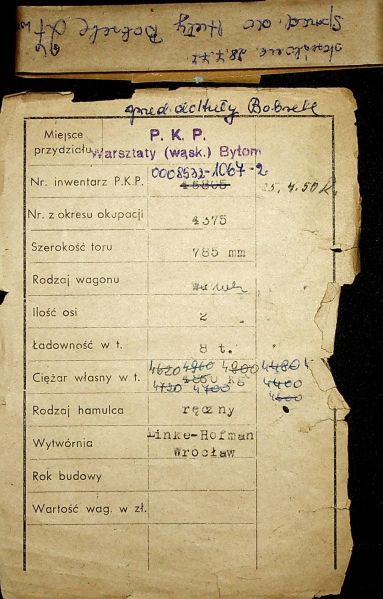 Sprzed. do Huty Bobrek
skreślone 28.7.72
sprzed. do Huty Bobrek
Miejsce przydziału
P. K. P.
Warsztaty (wąsk.) Bytom
Nr. inwentarz P.K.P. 0008532-1067-2
Nr. z okresu okupacji 4375
Szerokość toru 785 mm
Rodzaj wagonu
Ilość osi 2
Ładowność w t. 8 t.
Ciężar własny w t. 4620 4960 4900 4480
4720 4860 kg 4700 4400
4600
Rodzaj hamulca ręczny
Wytwórnia Linke-Hofman
Wrocław
Rok budowy
Wartość wag. w zł.